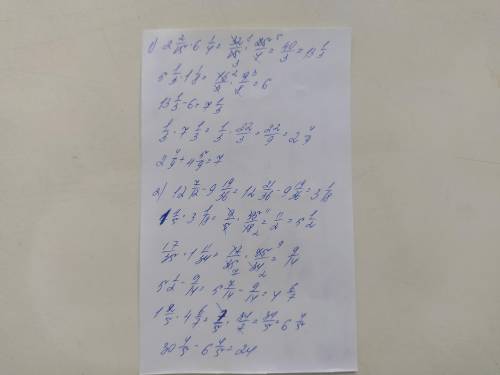 1) 2 2/15 · 6 1/4 = 32/15 · 25/4 = 40/3 = 13 1/3
5 1/3 · 1 1/8 = 16/3 · 9/8 = 6
13 1/3 - 6 = 7 1/3
1/3 · 7 1/3 = 1/3 · 22/3 = 22/9 = 2 4/9
2 4/9 + 4 5/9 = 7
2) 12 7/12 - 9 19/36 = 12 21/36 - 9 19/36 = 3 1/18
1 4/5 · 3 1/18 = 9/5 · 55/18 = 11/2 = 5 1/2
17/35 · 1 11/34 = 17/35 · 45/34 = 9/14
5 1/2 - 9/14 = 5 7/14 - 9/14 = 4 6/7
1 2/5 · 4 6/7 = 7/5 · 34/7 = 34/5 = 6 4/5
30 4/5 - 6 4/5 = 24